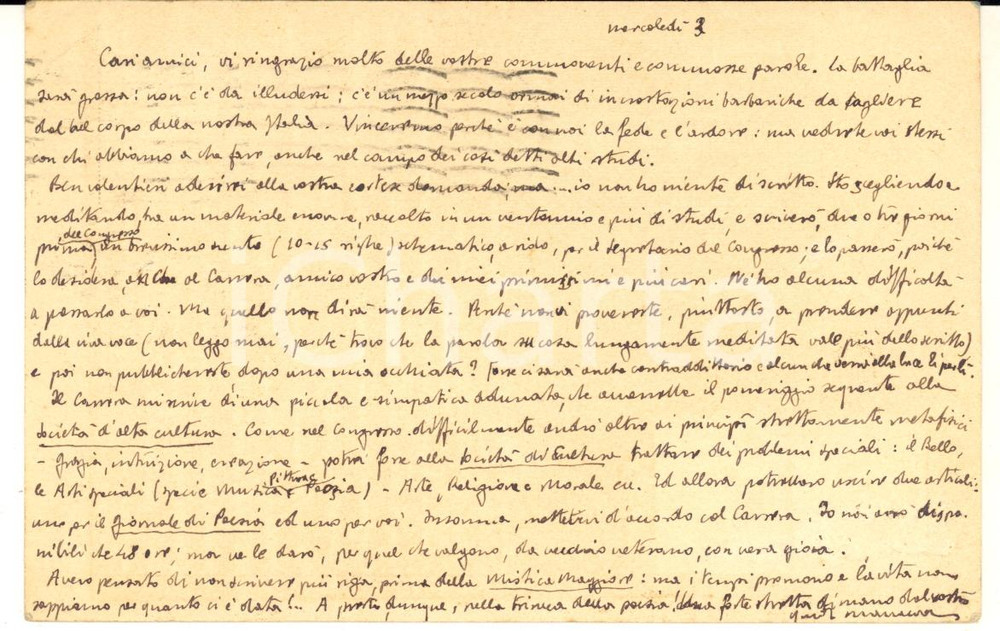 mercoledì 3
Cari amici, vi ringrazio molto delle vostre commoventi e commosse parole. La battaglia
sarà grossa: non c'è da illudersi; c'è un mezzo secolo ormai di incrostazioni barbariche da togliere
dal bel corpo della nostra Italia. Vinceremo perché è con noi la fede e l'ardore: ma vedrete voi stessi
con chi abbiamo a che fare, anche nel campo dei così detti alti studi.
Ben volentieri aderirei alla vostra cortese domanda, ma... io non ho niente di scritto. Sto scegliendo e
meditando, tra un materiale enorme, raccolto in un ventennio e più di studi, e scriverò, due o tre giorni
prima del Congresso, un brevissimo sunto (10-15 righe) schematico, arido, per il segretario del Congresso; e lo passerò, poiché
lo desidera, al Carrera, amico vostro e dei miei primissimi e più cari. Né ho alcuna difficoltà
a passarlo a voi. Ma quello non dirà niente. Perché non provereste, piuttosto, a prendere appunti
dalla viva voce (non leggo mai, perché trovo che la parola su cosa lungamente meditata vale più dello scritto)
e poi non pubblichereste dopo una mia occhiata? Forse ci sarà anche contraddittorio e alcunché verrà alla luce
Il Carrera mi scrive di una piccola e simpatica adunata, che avverrebbe il pomeriggio seguente alla
Società d'alta cultura. Come nel Congresso difficilmente andrò oltre ai principî strettamente metafisici
- grazia, intuizione, creazione - potrei forse alla Società di Cultura trattare dei problemi speciali: il Bello,
le Arti speciali (specie Musica Pittura e Poesia) - Arte, Religione e Morale ecc. Ed allora potranno uscire due articoli:
uno per il Giornale di Poesia ed uno per voi. Insomma, mettetevi d'accordo col Carrera. Io non avrò dispo-
nibili che 48 ore; ma ve le darò, per quel che valgono, da vecchio veterano, con vera gioia.
Avevo pensato di non scrivere più riga, prima della Mistica Maggiore: ma i tempi premono e la vita non
sappiamo per quanto ci è data!... A presto, dunque, nella trincea della poesia! Una forte stretta di mano dal vostro